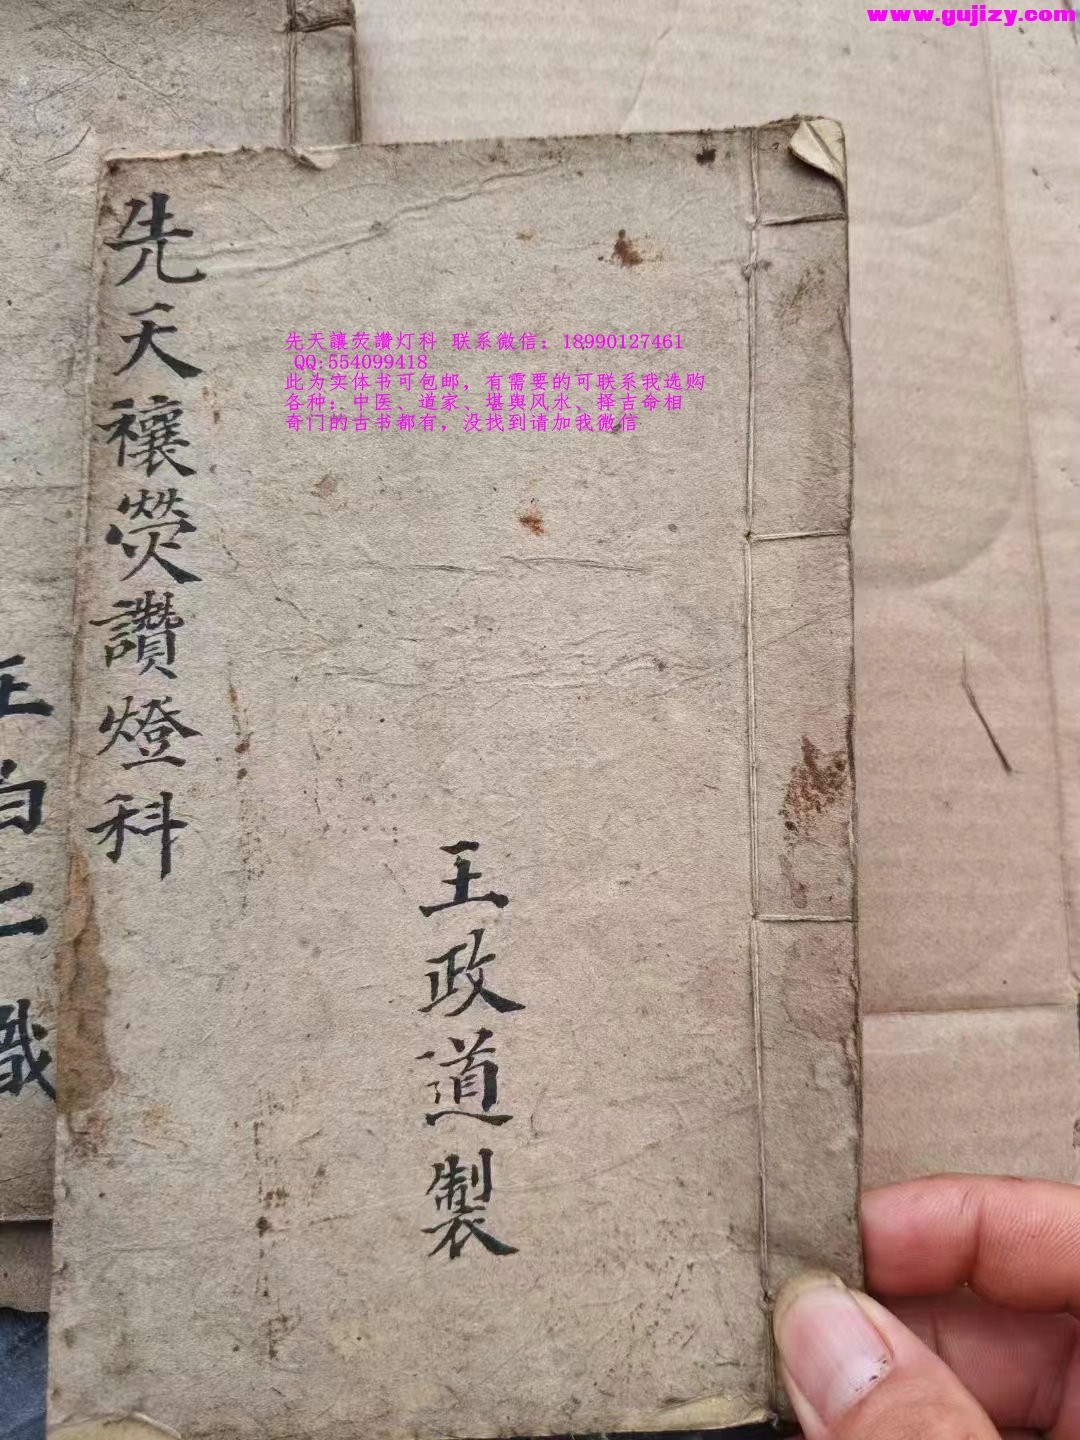 www.gujizy.com
先天讓荧讚灯科 联系微信：18990127461
QQ:554099418
此为实体书可包邮，有需要的可联系我选购
各种：中医、道家、堪舆风水、择吉命相
奇门的古书都有，没找到请加我微信
先天禳熒讚燈科
王政道製